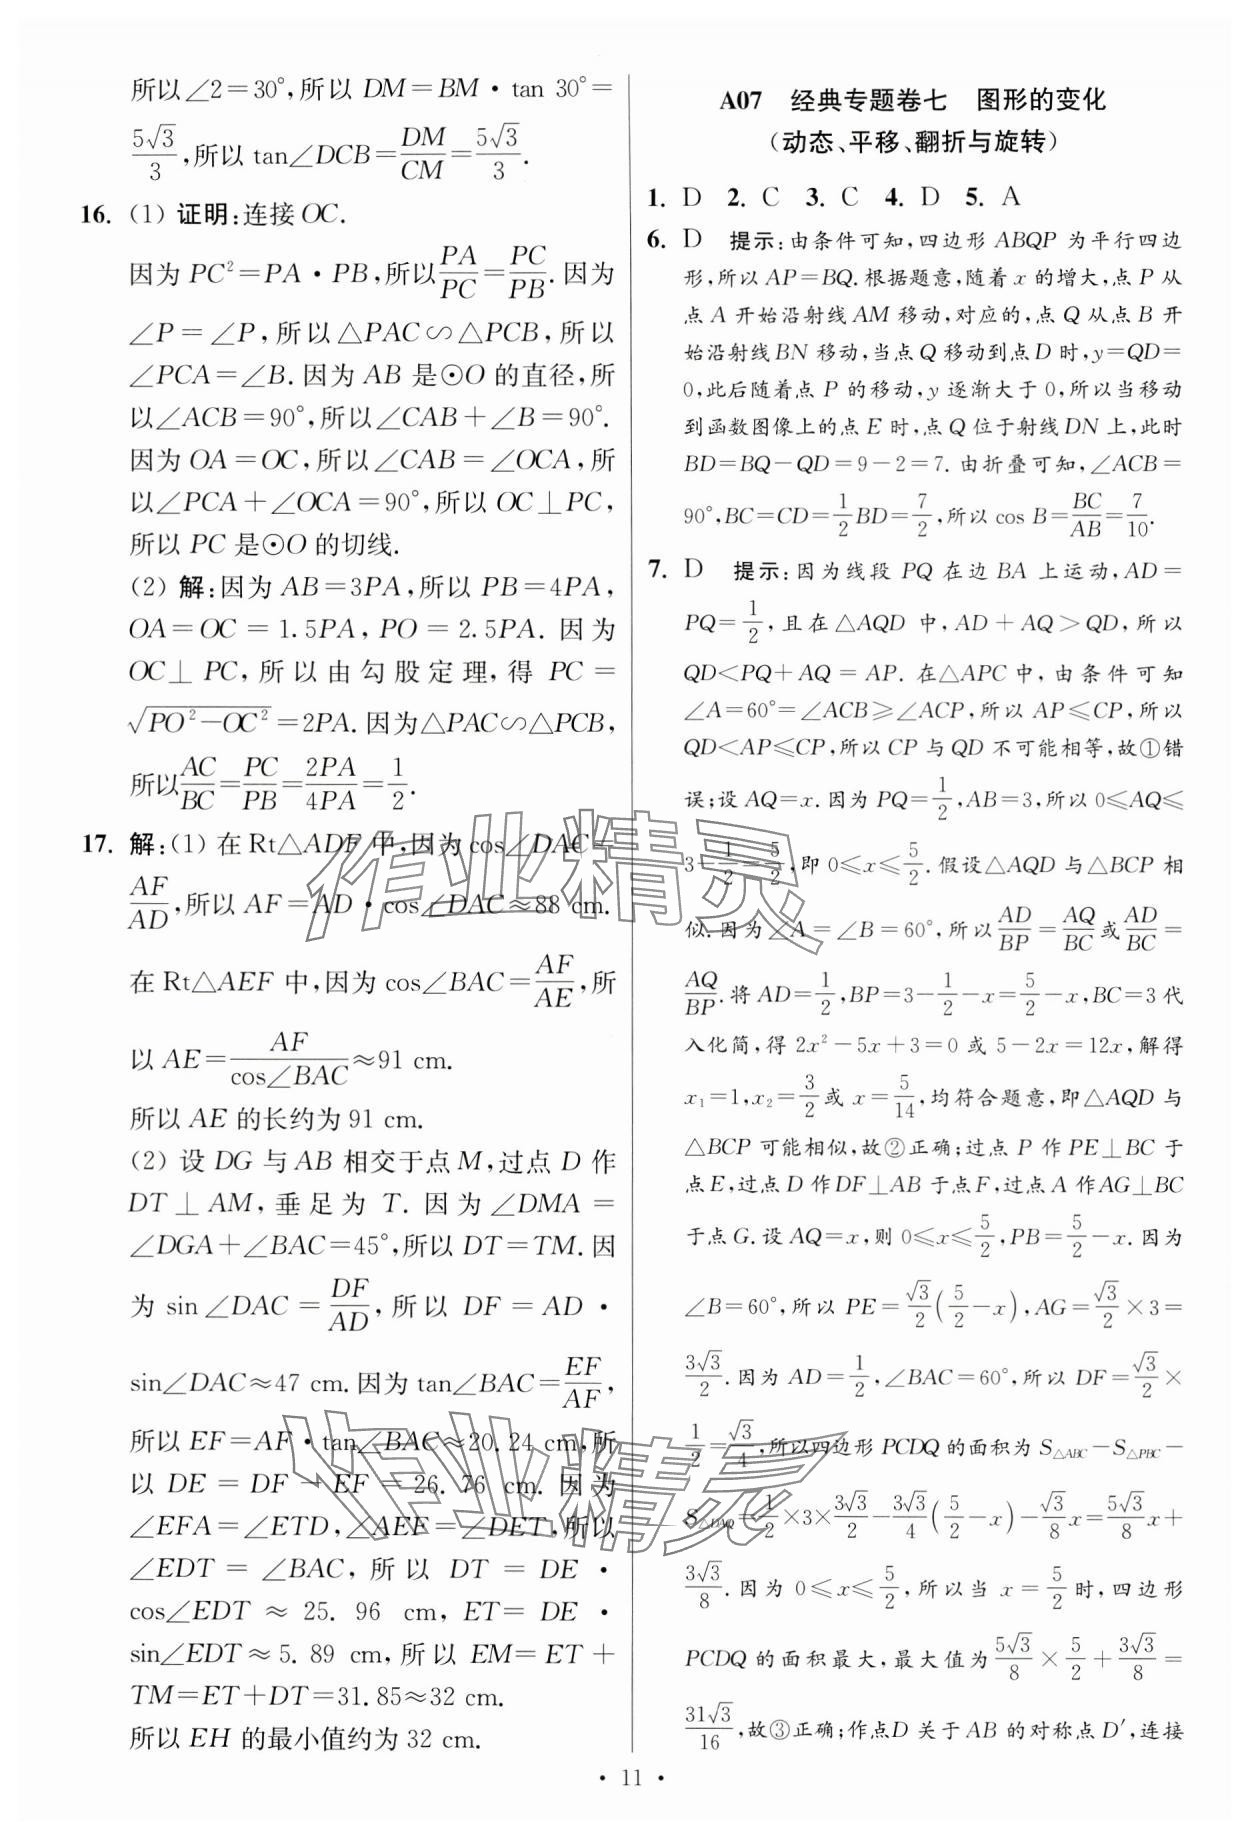 所以∠2=30°,所以 DM=BM·tan 30°=
5√3/3,所以 tan∠DCB=DM/CM=5√3/3.
16. (1) 证明:连接 OC.
因为 PC²=PA·PB,所以PA/PC=PC/PB.因为
∠P=∠P,所以△PAC∽△PCB,所以
∠PCA=∠B.因为 AB 是⊙O 的直径,所
以∠ACB=90°,所以∠CAB+∠B=90°.
因为 OA=OC,所以∠CAB=∠OCA,所
以∠PCA+∠OCA=90°,所以 OC⊥PC,
所以 PC 是⊙O 的切线.
(2) 解:因为 AB=3PA,所以 PB=4PA,
OA=OC=1.5PA,PO=2.5PA.因为
OC⊥PC,所以由勾股定理,得 PC=
√(PO²-OC²)=2PA.因为△PAC∽△PCB,
所以AC/BC=PC/PB=2PA/4PA=1/2.
17. 解:(1) 在 Rt△ADF 中,因为 cos∠DAC=
AF/AD,所以 AF=AD·cos∠DAC≈88 cm.
在 Rt△AEF 中,因为 cos∠BAC=AF/AE,所
以 AE=AF/cos∠BAC≈91 cm.
所以 AE 的长约为 91 cm.
(2) 设 DG 与 AB 相交于点 M,过点 D 作
DT⊥AM,垂足为 T.因为∠DMA=
∠DGA+∠BAC=45°,所以 DT=TM.因
为 sin∠DAC=DF/AD,所以 DF=AD·
sin∠DAC≈47 cm.因为 tan∠BAC=EF/AF,
所以 EF=AF·tan∠BAC≈20.24 cm,所
以 DE=DF-EF=26.76 cm.因为
∠EFA=∠ETD,∠AEF=∠DET,所以
∠EDT=∠BAC,所以 DT=DE·
cos∠EDT≈25.96 cm,ET=DE·
sin∠EDT≈5.89 cm,所以 EM=ET+
TM=ET+DT=31.85≈32 cm.
所以 EH 的最小值约为 32 cm.
A07 经典专题卷七 图形的变化
(动态、平移、翻折与旋转)
1. D 2. C 3. C 4. D 5. A
6. D 提示:由条件可知,四边形 ABQP 为平行四边
形,所以 AP=BQ.根据题意,随着 x 的增大,点 P 从
点 A 开始沿射线 AM 移动,对应的,点 Q 从点 B 开
始沿射线 BN 移动,当点 Q 移动到点 D 时,y=QD=
0,此后随着点 P 的移动,y 逐渐大于 0,所以当移动
到函数图像上的点 E 时,点 Q 位于射线 DN 上,此时
BD=BQ-QD=9-2=7.由折叠可知,∠ACB=
90°,BC=CD=1/2BD=7/2,所以 cos B=BC/AB=7/10.
7. D 提示:因为线段 PQ 在边 BA 上运动,AD=
PQ=1/2,且在△AQD 中,AD+AQ>QD,所以
QD<PQ+AQ=AP.在△APC 中,由条件可知
∠A=60°=∠ACB≥∠ACP,所以 AP≤CP,所以
QD<AP≤CP,所以 CP 与 QD 不可能相等,故①错
误;设 AQ=x.因为 PQ=1/2,AB=3,所以 0≤AQ≤
3-1/2=5/2,即 0≤x≤5/2.假设△AQD 与△BCP 相
似.因为∠A=∠B=60°,所以AD/BP=AQ/BC或AD/BC=
AQ/BP.将 AD=1/2,BP=3-1/2-x=5/2-x,BC=3代
入化简,得 2x²-5x+3=0 或 5-2x=12x,解得
x₁=1,x₂=3/2或 x=5/14,均符合题意,即△AQD 与
△BCP 可能相似,故②正确;过点 P 作 PE⊥BC 于
点 E,过点 D 作 DF⊥AB 于点 F,过点 A 作 AG⊥BC
于点 G.设 AQ=x,则 0≤x≤5/2,PB=5/2-x.因为
∠B=60°,所以 PE=√3/2(5/2-x),AG=√3/2×3=
3√3/2.因为 AD=1/2,∠BAC=60°,所以 DF=√3/2×
1/2=√3/4,所以四边形 PCDQ 的面积为 S△ABC-S△PBC-
S△DAQ=1/2×3×3√3/2-3√3/4(5/2-x)-√3/8x=5√3/8x+
3√3/8.因为 0≤x≤5/2,所以当 x=5/2时,四边形
PCDQ 的面积最大,最大值为5√3/8×5/2+3√3/8=
31√3/16,故③正确;作点 D 关于 AB 的对称点 D′,连接
·11·
作业精灵
作业精灵